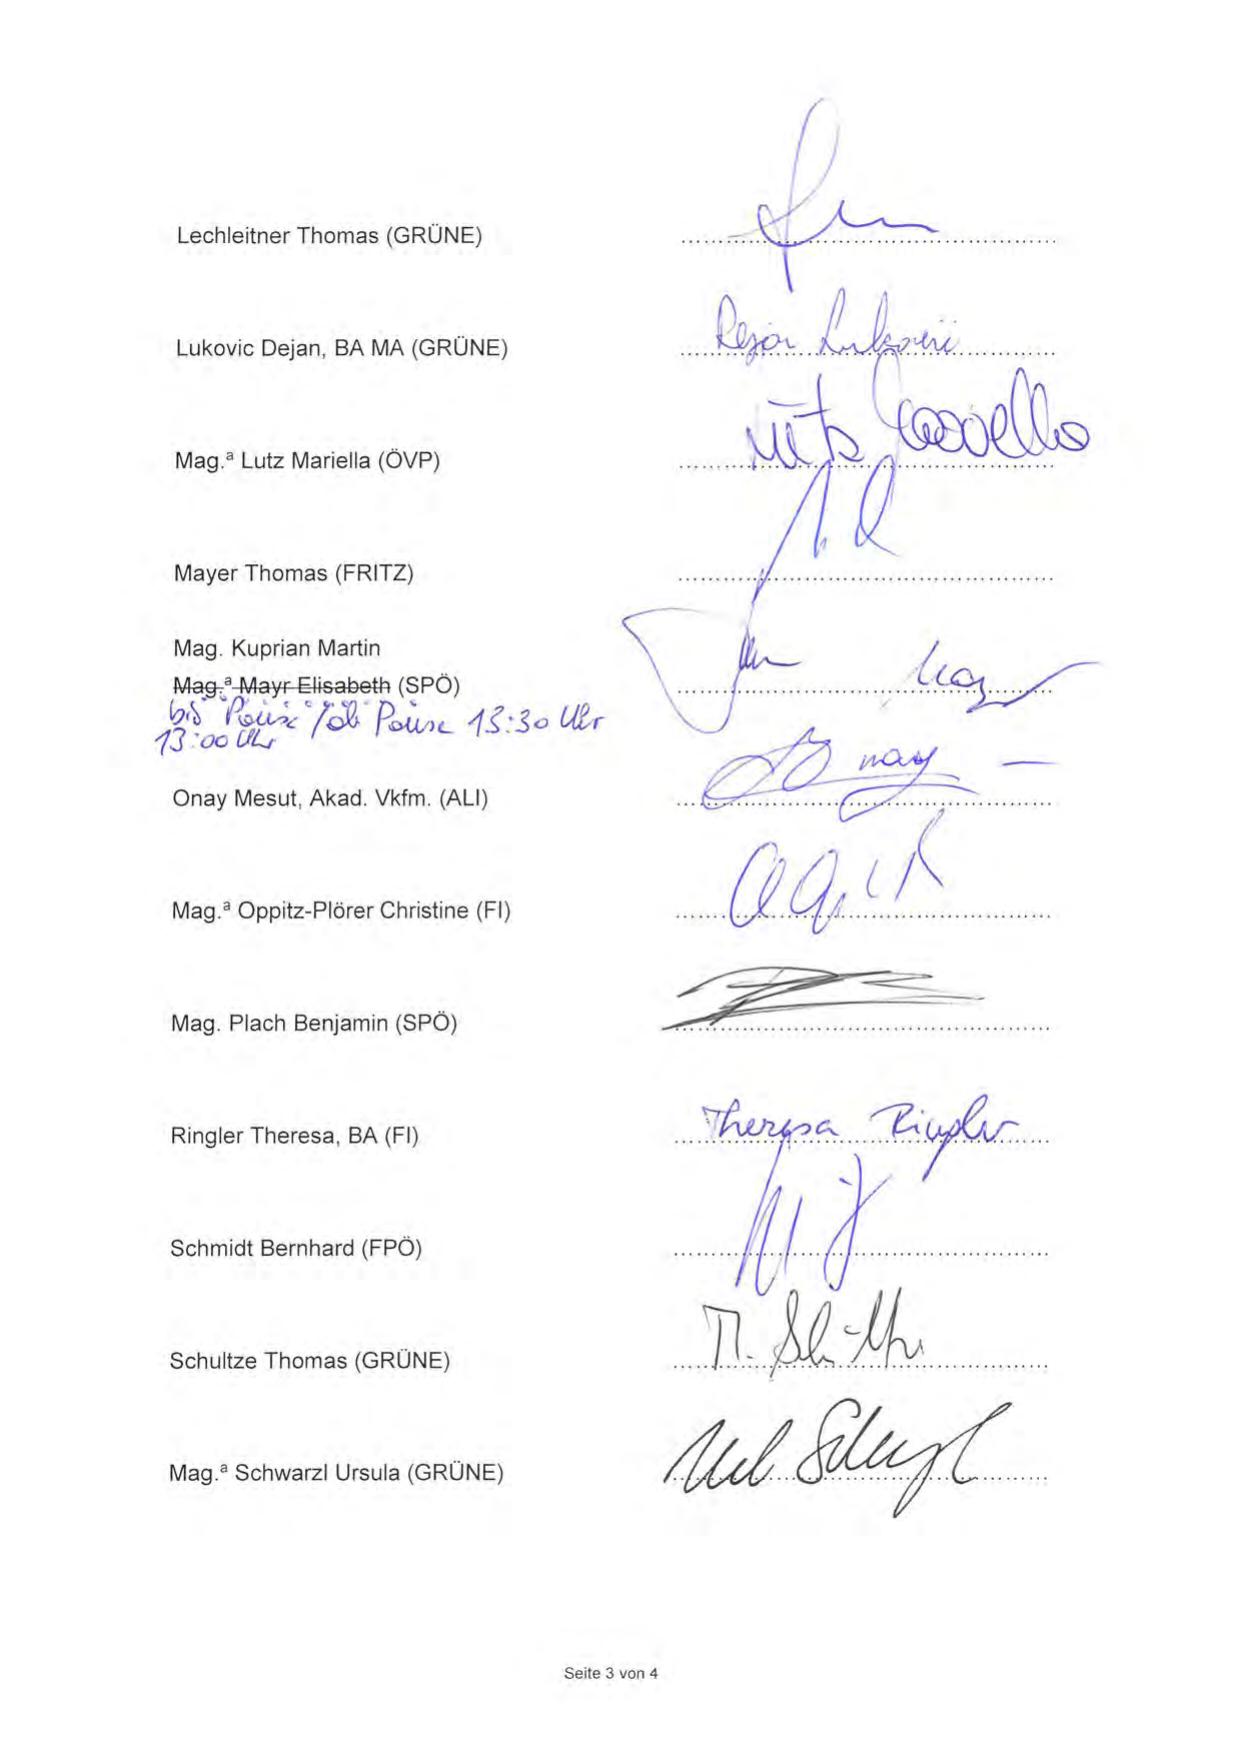 Lechleitner Thomas (GRÜNE)
Lukovic Dejan, BA MA (GRÜNE)
Dejan Lukovic
Mag.ª Lutz Mariella (ÖVP)
Mayer Thomas (FRITZ)
Mag. Kuprian Martin
Mag.ª Mayr Elisabeth (SPÖ)
bis Pause / ab Pause 13:30 Uhr
13:00 Uhr
Onay Mesut, Akad. Vkfm. (ALI)
Onay
Mag.ª Oppitz-Plörer Christine (FI)
Mag. Plach Benjamin (SPÖ)
Ringler Theresa, BA (FI)
Theresa Ringler
Schmidt Bernhard (FPÖ)
Schultze Thomas (GRÜNE)
Mag.ª Schwarzl Ursula (GRÜNE)
Seite 3 von 4